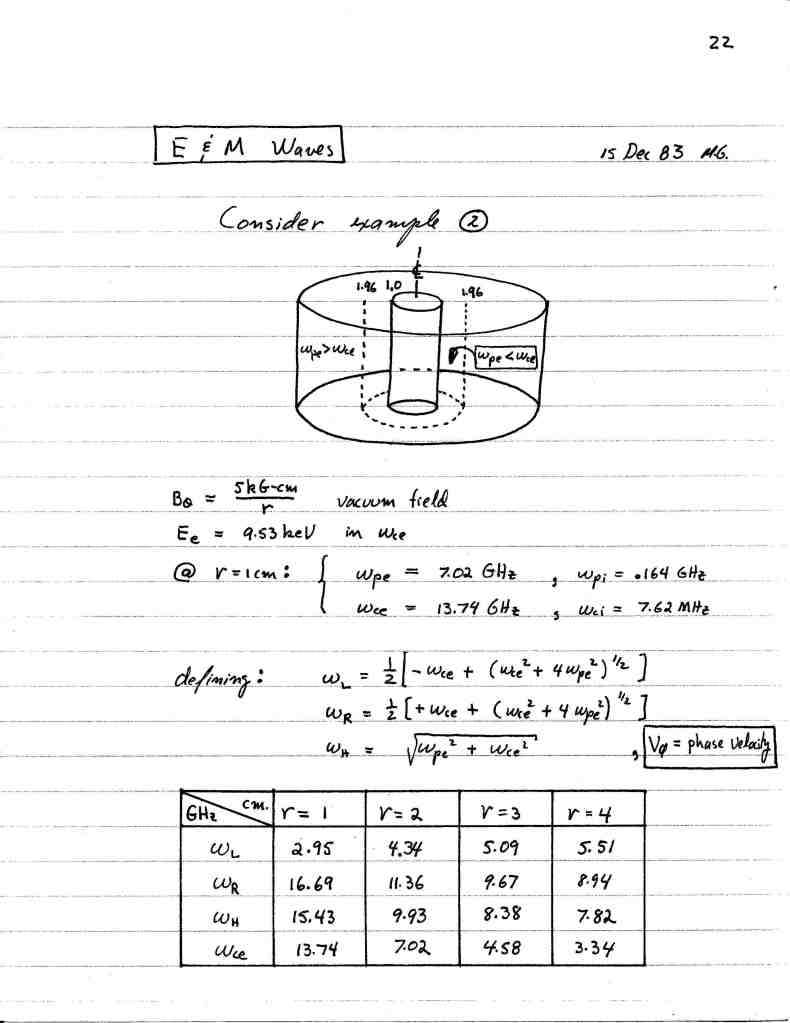 22
E & M Waves
15 Dec 83 MG.
Consider example ②
℄
1.96 1.0 1.96
ωpe > ωce
ωpe < ωce
Bθ = 5kG-cm / r vacuum field
Ee = 9.53 keV in ωce
@ r = 1cm : { ωpe = 7.02 GHz , ωpi = .164 GHz
ωce = 13.74 GHz , ωci = 7.62 MHz
defining : ωL = 1/2 [ - ωce + (ωce² + 4 ωpe²)^1/2 ]
ωR = 1/2 [ + ωce + (ωce² + 4 ωpe²)^1/2 ]
ωH = √(ωpe² + ωce²) , Vφ = phase velocity
GHz cm. r = 1 r = 2 r = 3 r = 4
ωL 2.95 4.34 5.09 5.51
ωR 16.69 11.36 9.67 8.94
ωH 15.43 9.93 8.38 7.82
ωce 13.74 7.02 4.58 3.34